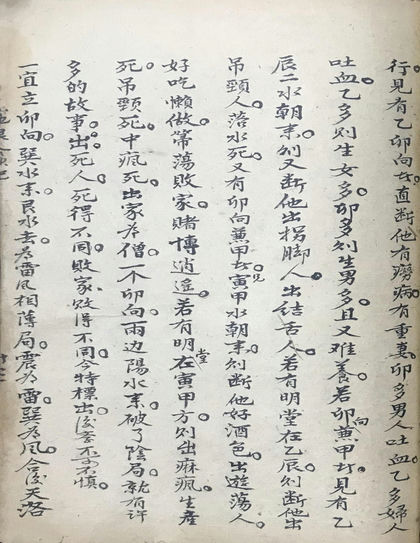 行見有乙卯向者直断他有癆病有重喪卯多男人吐血乙多婦人
吐血乙多则生女多卯多则生男多且又难養若卯向蕪甲者見有乙
辰二水朝来则又断他出拐脚人出结舌人若有明堂在乙辰则断他出
吊頸人落水死又有卯向蕪甲者見寅甲水朝来则断他好酒色出遊荡人
好吃懒做常荡敗家赌博逍遥若有明堂在寅甲方则出麻瘋生産
死吊頸死中瘋死出家为僧一个卯向两边陽水来破了陰局就有许
多的故事出死人死得不同敗家敗得不同今特標出後来不可不慎
一宜立卯向巽水来艮水去为雷风相薄局震为雷巽为风合後天洛